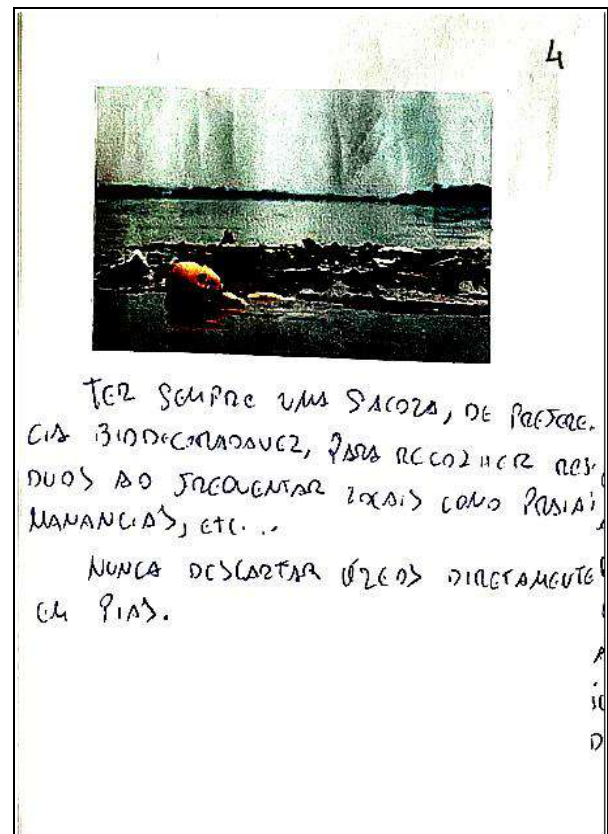 4
TER SEMPRE UMA SACOLA, DE PREFERE.
CIA BIODEGRADAVEL, PARA RECOLHER RES.
DUOS AO FREQUENTAR LOCAIS COMO PRAIAS
MANANCIAS, ETC...
NUNCA DESCARTAR ÓLEOS DIRETAMENTE
EM PIAS.